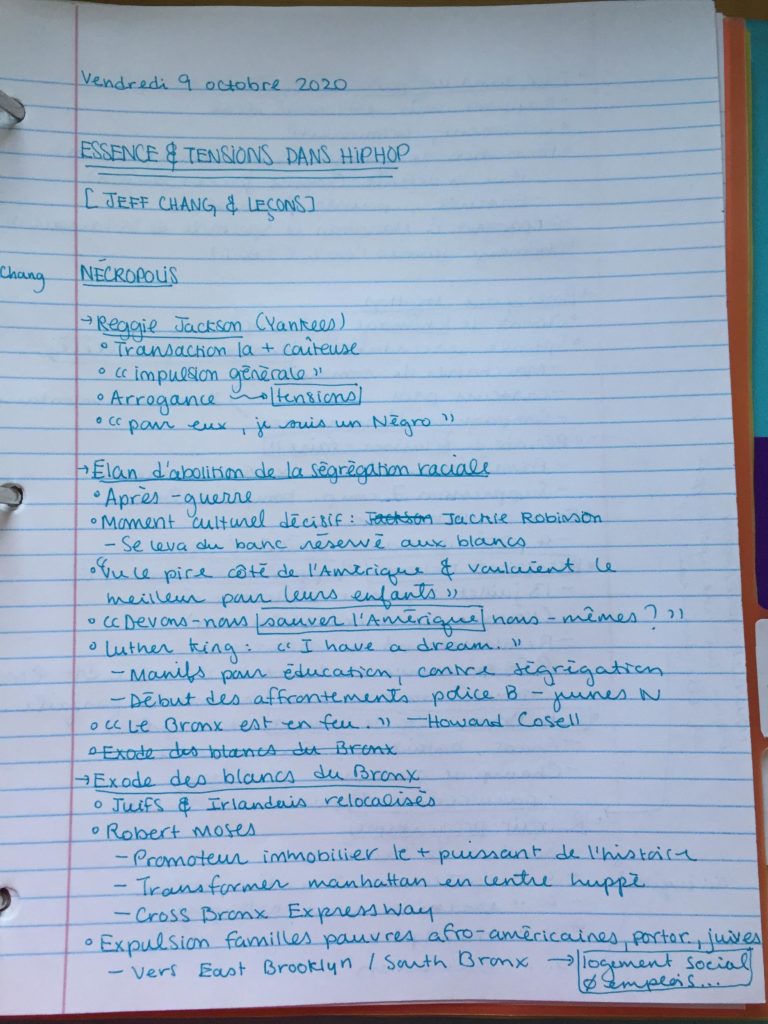 Vendredi 9 octobre 2020
ESSENCE & TENSIONS DANS HIPHOP
[JEFF CHANG & LEÇONS]
Chang NÉCROPOLIS
→ Reggie Jackson (Yankees)
° Transaction la + coûteuse
° « impulsion générale »
° Arrogance ⤳ tensions
° « pour eux, je suis un Négro »
→ Élan d'abolition de la ségrégation raciale
° Après-guerre
° Moment culturel décisif : Jackson Jackie Robinson
- Se leva du banc réservé aux blancs
° « Vu le pire côté de l'Amérique & voulaient le
meilleur pour leurs enfants »
° « Devons-nous sauver l'Amérique nous-mêmes ? »
° Luther King : « I have a dream. »
- Manifs pour éducation, contre ségrégation
- Début des affrontements police B - jeunes N
° « Le Bronx est en feu. » — Howard Cosell
° Exode des blancs du Bronx
→ Exode des blancs du Bronx
° Juifs & Irlandais relocalisés
° Robert Moses
- Promoteur immobilier le + puissant de l'histoire
- Transformer manhattan en centre huppé
- Cross Bronx ExpressWay
° Expulsion familles pauvres afro-américaines, portor., juives
- Vers East Brooklyn / South Bronx → logement social
∅ emplois...